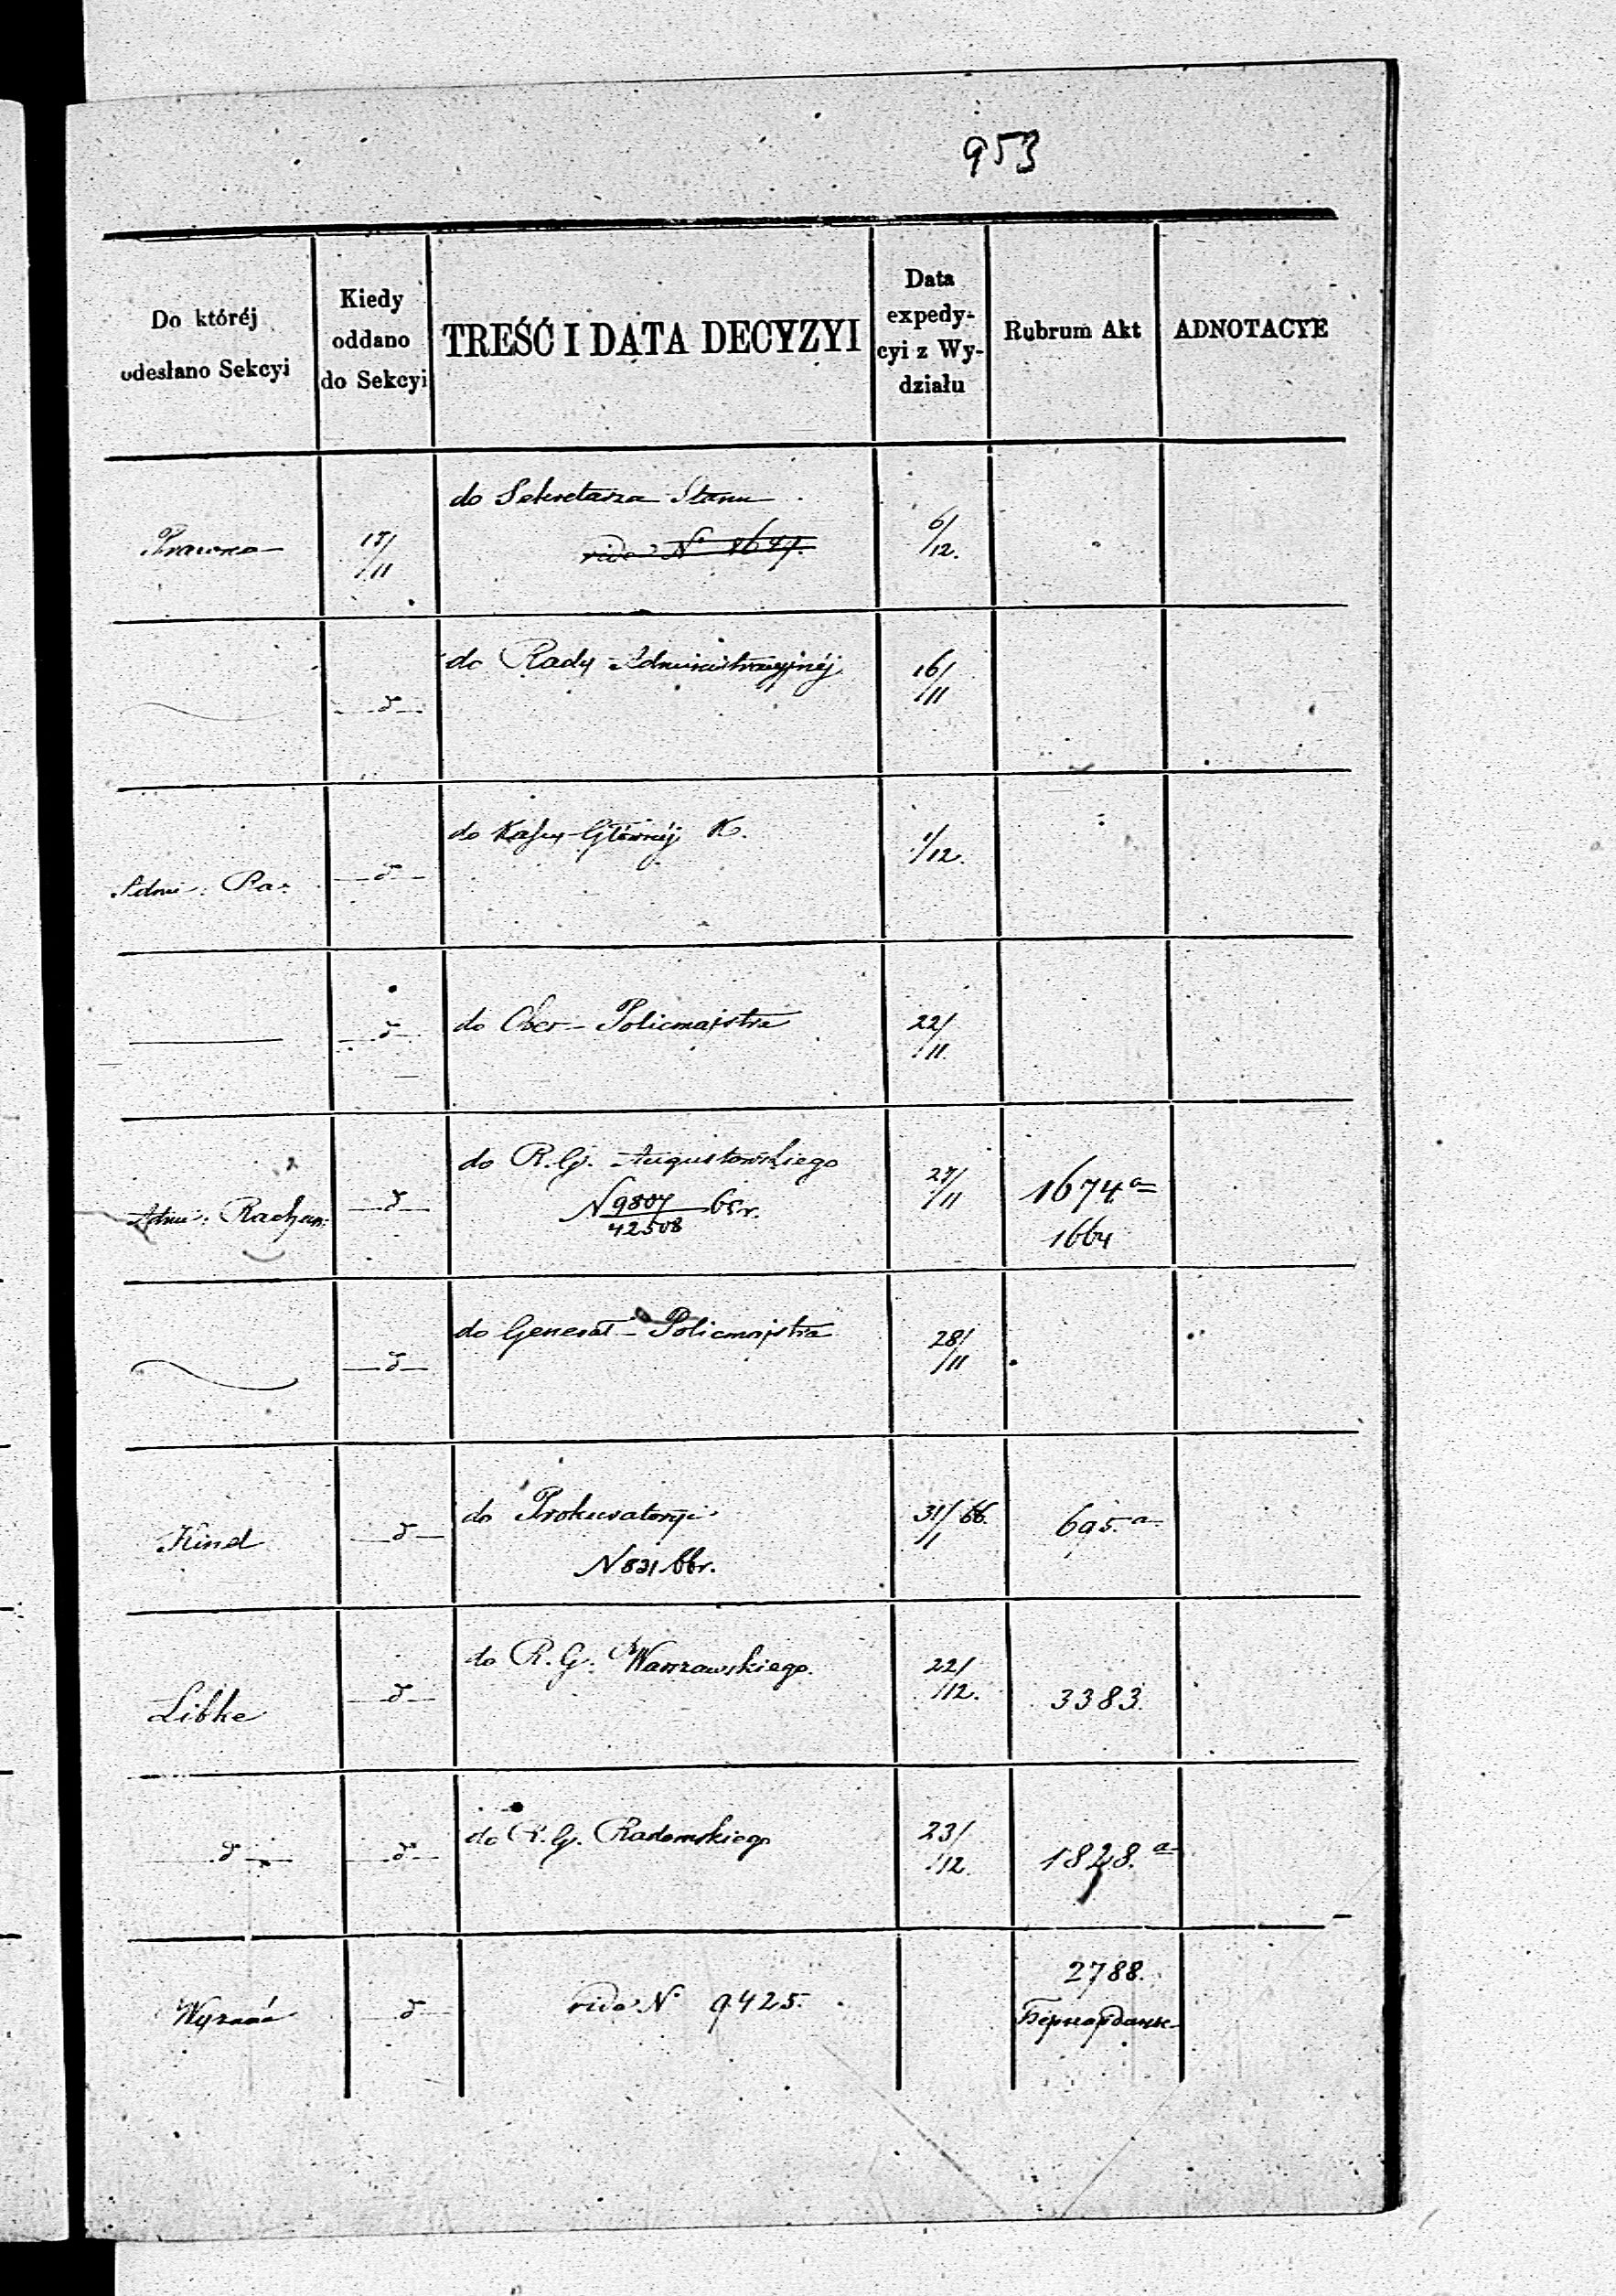 953
Do któréj
odesłano Sekcyi
Kiedy
oddano
do Sekcyi
TREŚĆ I DATA DECYZYI
Data
expedy-
cyi z Wy-
działu
Rubrum Akt
ADNOTACYE
Prawna
15/11
do Sekretarza Stanu
vide No
6/12.
d
do Rady Administracyjnéj
16/11
Admi: Ra:
d
do Kassy Głównéj K.
1/12.
d
do Ober-Policmajstra
22/11
Admi: Rachun:
d
do R.G. Augustowskiego
N 9807/42508 65r.
27/11
1674a
1664
d
do Generał-Policmajstra
28/11
Kind
d
do Prokuratoryi
N 831 66r.
31/1 66.
695.a
Libke
d
do R.G. Warszawskiego.
22/12.
3383.
d
d
do R.G. Radomskiego
23/12.
1828.a
d
vide No 9425.
2788.